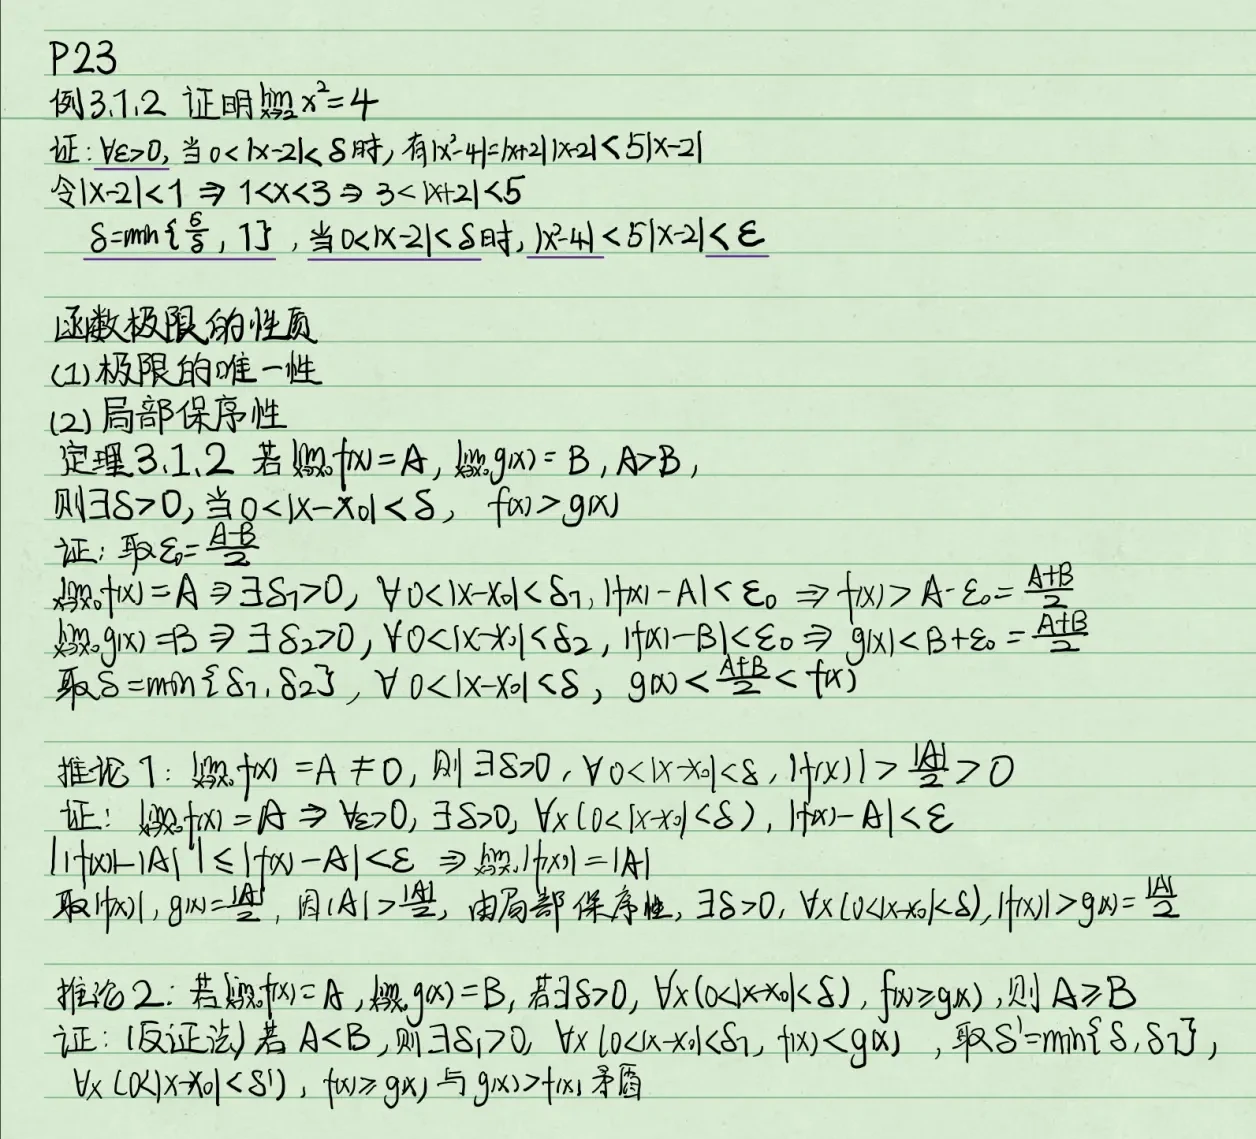 P23
例3.1.2 证明 lim_{x→2} x²=4
证: ∀ε>0, 当0<|x-2|<δ时, 有|x²-4|=|x+2||x-2|<5|x-2|
令|x-2|<1 ⇒ 1<x<3 ⇒ 3<|x+2|<5
δ=min{ε/5, 1}, 当0<|x-2|<δ时, |x²-4|<5|x-2|<ε
函数极限的性质
(1) 极限的唯一性
(2) 局部保序性
定理3.1.2 若 lim_{x→x₀} f(x)=A, lim_{x→x₀} g(x)=B, A>B,
则∃δ>0, 当0<|x-x₀|<δ, f(x)>g(x)
证: 取ε₀=(A-B)/2
lim_{x→x₀} f(x)=A ⇒ ∃δ₁>0, ∀0<|x-x₀|<δ₁, |f(x)-A|<ε₀ ⇒ f(x)>A-ε₀=(A+B)/2
lim_{x→x₀} g(x)=B ⇒ ∃δ₂>0, ∀0<|x-x₀|<δ₂, |f(x)-B|<ε₀ ⇒ g(x)<B+ε₀=(A+B)/2
取δ=min{δ₁, δ₂}, ∀0<|x-x₀|<δ, g(x)<(A+B)/2<f(x)
推论1: lim_{x→x₀} f(x)=A≠0, 则∃δ>0, ∀0<|x-x₀|<δ, |f(x)|>|A|/2>0
证: lim_{x→x₀} f(x)=A ⇒ ∀ε>0, ∃δ>0, ∀x(0<|x-x₀|<δ), |f(x)-A|<ε
||f(x)|-|A||≤|f(x)-A|<ε ⇒ lim_{x→x₀} |f(x)|=|A|
取|f(x)|, g(x)=|A|/2, 因|A|>|A|/2, 由局部保序性, ∃δ>0, ∀x(0<|x-x₀|<δ), |f(x)|>g(x)=|A|/2
推论2: 若 lim_{x→x₀} f(x)=A, lim_{x→x₀} g(x)=B, 若∃δ>0, ∀x(0<|x-x₀|<δ), f(x)≥g(x), 则A≥B
证: (反证法) 若A<B, 则∃δ₁>0, ∀x(0<|x-x₀|<δ₁, f(x)<g(x), 取δ'=min{δ, δ₁},
∀x(0<|x-x₀|<δ'), f(x)≥g(x) 与g(x)>f(x) 矛盾